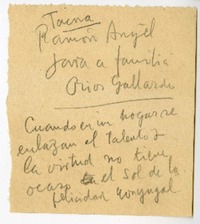 Tacna
Ramón Angél
Jara a familia
Rios Gallardo
Cuando en un hogar se
enlazan el talento y
la virtud no tiene
ocaso el sol de la
felicidad conyugal